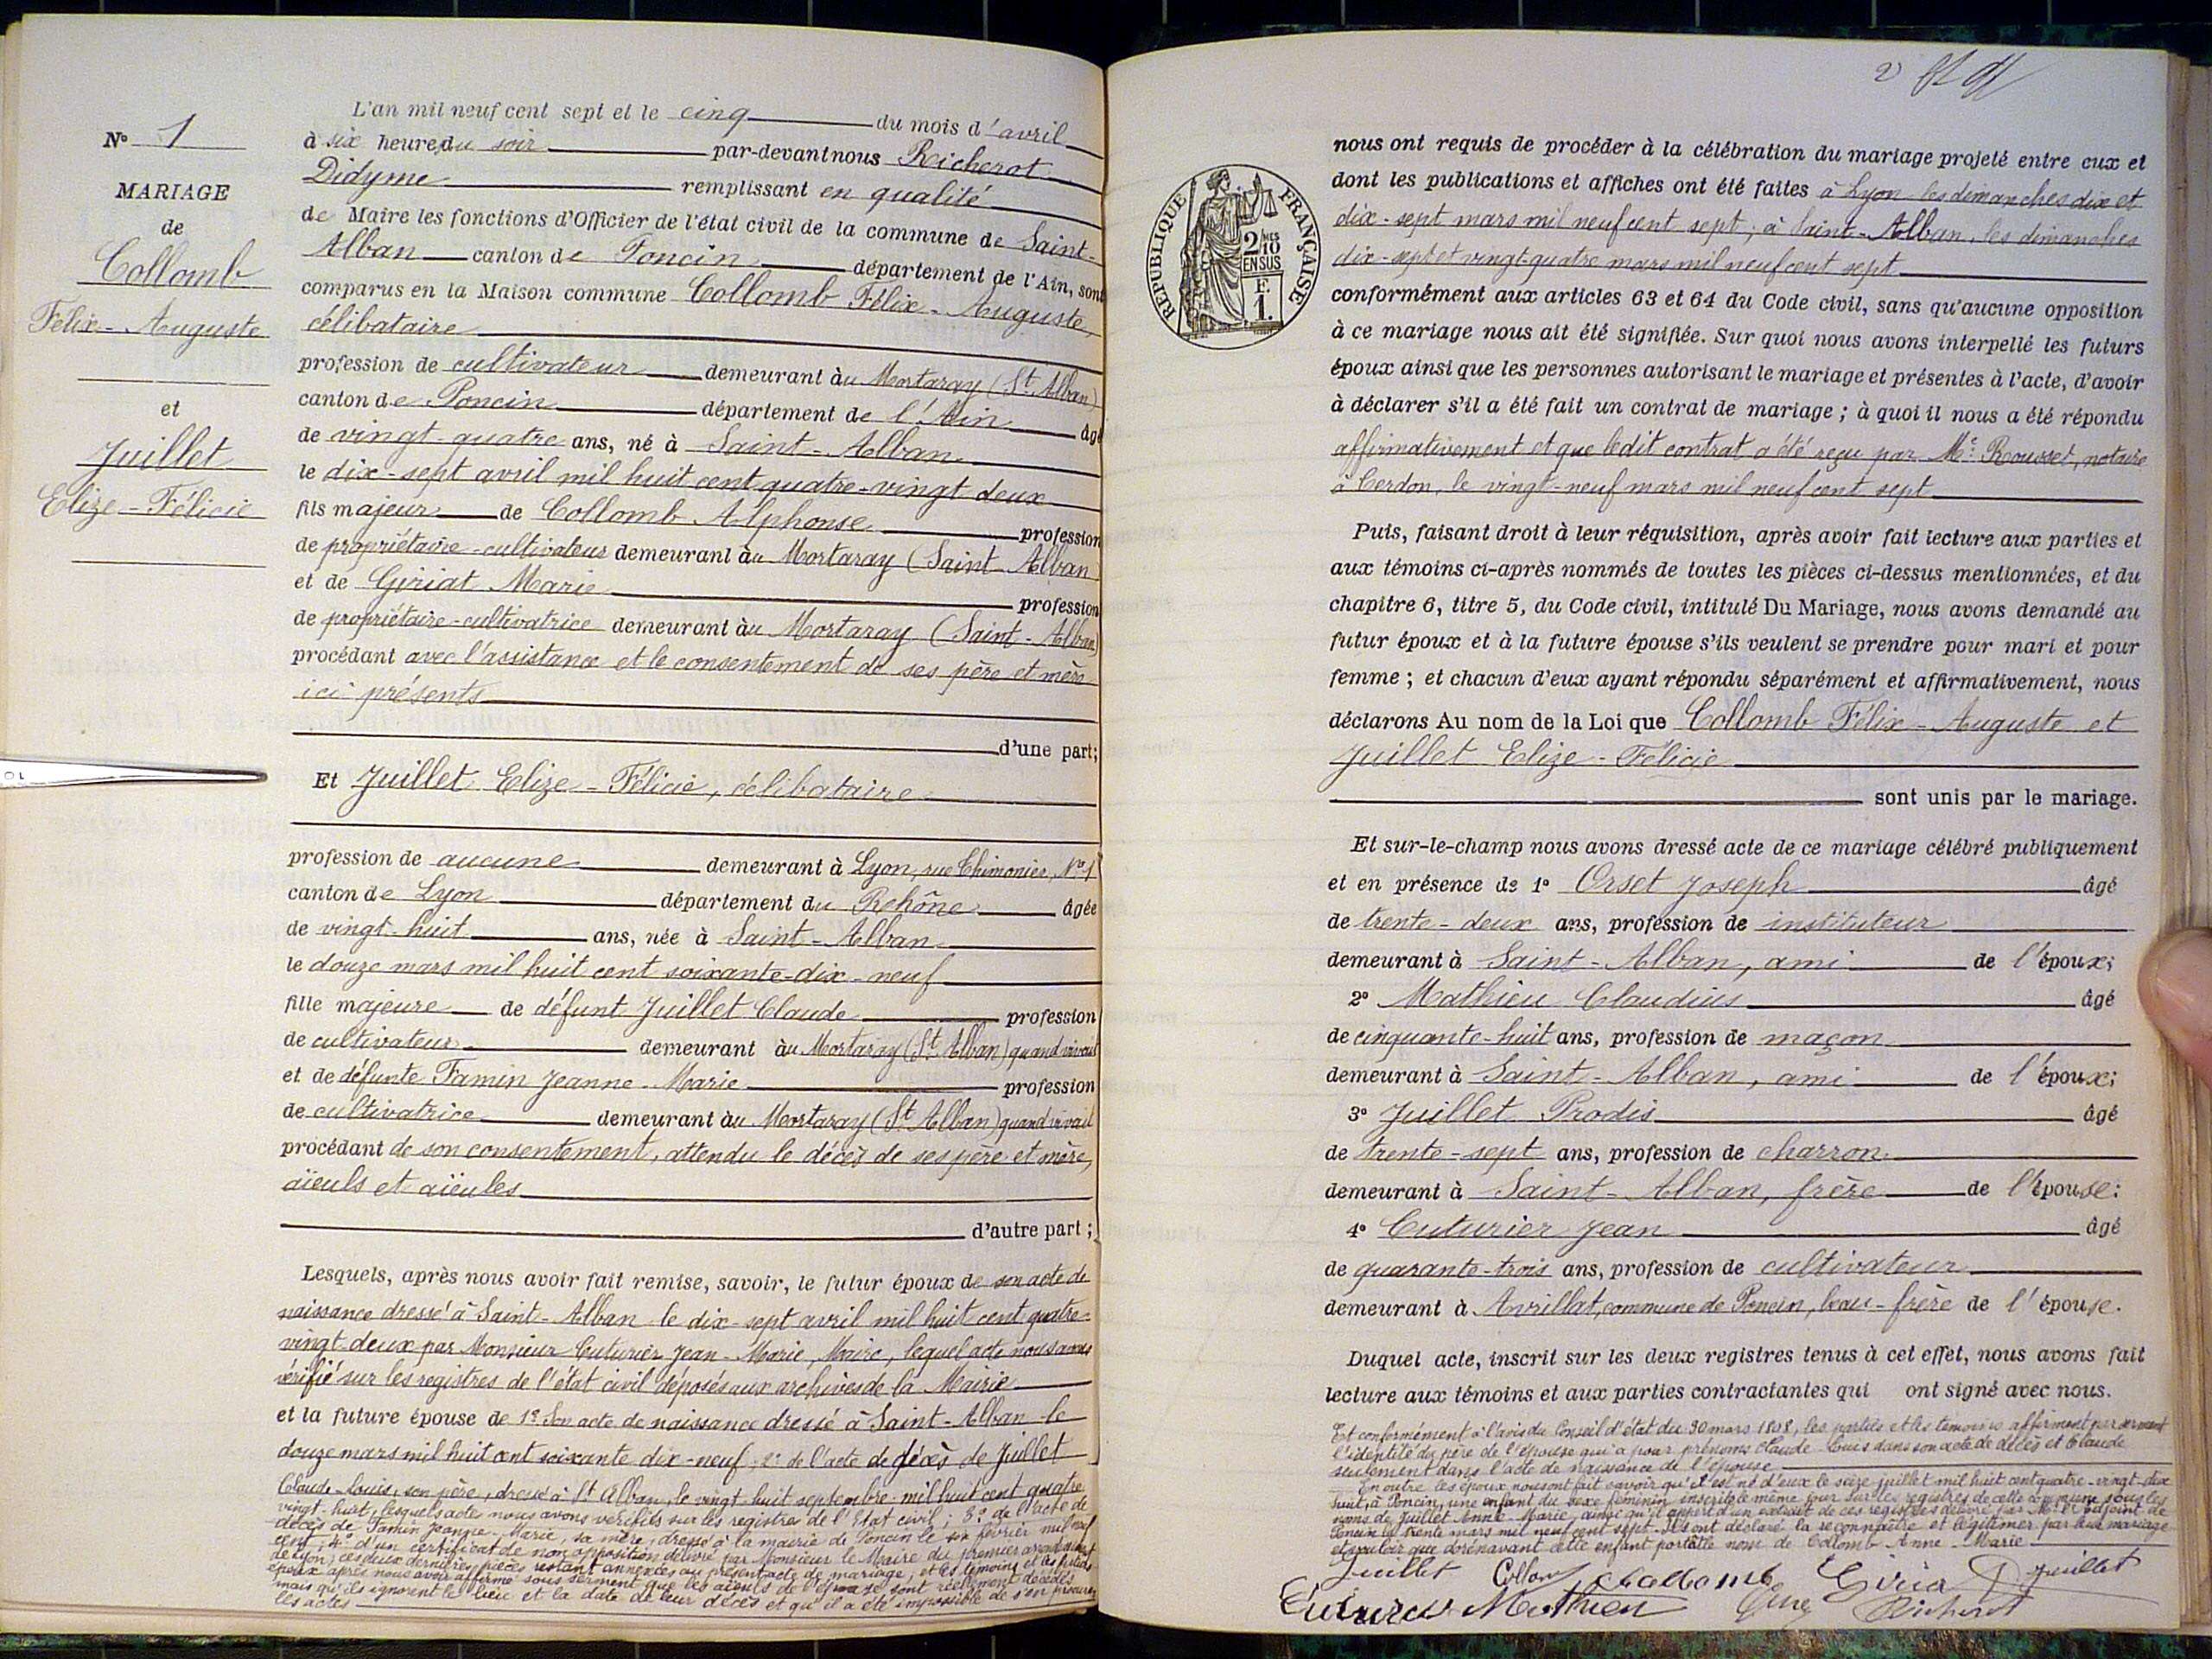 N° 1
MARIAGE
de
Collomb
Félix - Auguste
et
Juillet
Elize - Félicie
L'an mil neuf cent sept et le cinq du mois d'avril
à six heures du soir par-devant nous Richerot
Didyme remplissant en qualité
de Maire les fonctions d'Officier de l'état civil de la commune de Saint-
Alban canton de Poncin département de l'Ain, sont
comparus en la Maison commune Collomb Félix - Auguste,
célibataire
profession de cultivateur demeurant au Mortaray (St Alban)
canton de Poncin département de l'Ain âgé
de vingt-quatre ans, né à Saint-Alban
le dix-sept avril mil huit cent quatre-vingt deux
fils majeur de Collomb Alphonse profession
de propriétaire-cultivateur demeurant au Mortaray (Saint-Alban
et de Giriat Marie profession
de propriétaire-cultivatrice demeurant au Mortaray (Saint-Alban)
procédant avec l'assistance et le consentement de ses père et mère
ici présents
d'une part;
Et Juillet Elize - Félicie, célibataire
profession de aucune demeurant à Lyon, rue Chimonier, N° 1
canton de Lyon département du Rhône âgée
de vingt-huit ans, née à Saint-Alban
le douze mars mil huit cent soixante-dix-neuf
fille majeure de défunt Juillet Claude profession
de cultivateur demeurant au Mortaray (St Alban) quand vivait
et de défunte Famin Jeanne-Marie profession
de cultivatrice demeurant au Mortaray (St Alban) quand vivait
procédant de son consentement, attendu le décès de ses père et mère,
aïeuls et aïeules
d'autre part;
Lesquels, après nous avoir fait remise, savoir, le futur époux de son acte de
naissance dressé à Saint-Alban le dix-sept avril mil huit cent quatre-
vingt-deux par Monsieur Cuturier Jean-Marie, Maire, lequel acte nous avons
vérifié sur les registres de l'état civil déposés aux archives de la Mairie
et la future épouse de 1° Son acte de naissance dressé à Saint-Alban le
douze mars mil huit cent soixante dix-neuf; 2° de l'acte de décès de Juillet
Claude-Louis, son père, dressé à St Alban, le vingt huit septembre mil huit cent quatre
vingt-huit, lesquels actes nous avons vérifiés sur les registres de l'Etat civil; 3° de l'acte de
décès de Famin Jeanne-Marie, sa mère, dressé à la mairie de Poncin le six février mil neuf
cent; 4° d'un certificat de non opposition délivré par Monsieur le Maire du premier arrondissement
de Lyon; ces deux dernières pièces restant annexées au présent acte de mariage, et les témoins et les futurs
époux après nous avoir affirmé sous serment que les aïeuls de l'épouse sont réellement décédés
mais qu'ils ignorent le lieu et la date de leur décès et qu'il a été impossible de s'en procurer
les actes
2
REPUBLIQUE FRANÇAISE
2/10 MES
EN SUS
F.
1.
nous ont requis de procéder à la célébration du mariage projeté entre eux et
dont les publications et affiches ont été faites à Lyon les dimanches dix et
dix-sept mars mil neuf cent sept; à Saint-Alban, les dimanches
dix-sept et vingt-quatre mars mil neuf cent sept
conformément aux articles 63 et 64 du Code civil, sans qu'aucune opposition
à ce mariage nous ait été signifiée. Sur quoi nous avons interpellé les futurs
époux ainsi que les personnes autorisant le mariage et présentes à l'acte, d'avoir
à déclarer s'il a été fait un contrat de mariage; à quoi il nous a été répondu
affirmativement et que ledit contrat a été reçu par Me Rousset, notaire
à Cerdon, le vingt-neuf mars mil neuf cent sept
Puis, faisant droit à leur réquisition, après avoir fait lecture aux parties et
aux témoins ci-après nommés de toutes les pièces ci-dessus mentionnées, et du
chapitre 6, titre 5, du Code civil, intitulé Du Mariage, nous avons demandé au
futur époux et à la future épouse s'ils veulent se prendre pour mari et pour
femme; et chacun d'eux ayant répondu séparément et affirmativement, nous
déclarons Au nom de la Loi que Collomb Félix - Auguste et
Juillet Elize - Félicie
sont unis par le mariage.
Et sur-le-champ nous avons dressé acte de ce mariage célébré publiquement
et en présence de 1° Orset Joseph âgé
de trente-deux ans, profession de instituteur
demeurant à Saint-Alban, ami de l'époux;
2° Mathieu Claudius âgé
de cinquante-huit ans, profession de maçon
demeurant à Saint-Alban, ami de l'époux;
3° Juillet Prodis âgé
de trente-sept ans, profession de charron
demeurant à Saint-Alban, frère de l'épouse:
4° Cuturier Jean âgé
de quarante-trois ans, profession de cultivateur
demeurant à Avrillat, commune de Poncin, beau-frère de l'épouse.
Duquel acte, inscrit sur les deux registres tenus à cet effet, nous avons fait
lecture aux témoins et aux parties contractantes qui ont signé avec nous.
Et conformément à l'avis du Conseil d'état du 30 mars 1808, les parties et les témoins affirment par serment
l'identité du père de l'épouse qui a pour prénoms Claude-Louis dans son acte de décès et Claude
seulement dans l'acte de naissance de l'épouse
En outre les époux nous ont fait savoir qu'il est né d'eux le seize juillet mil huit cent quatre-vingt-dix
huit, à Poncin, une enfant du sexe féminin inscrite le même jour sur les registres de cette commune sous les
noms de Juillet Anne-Marie, ainsi qu'il appert d'un extrait de ces registres délivré par Mr l'adjoint de
Poncin le trente mars mil neuf cent sept. Ils ont déclaré la reconnaître et légitimer par leur mariage
et vouloir que dorénavant cette enfant porte le nom de Collomb Anne-Marie
Juillet Collomb Collomb Giriat Juillet
Cuturier Mathieu Richerot